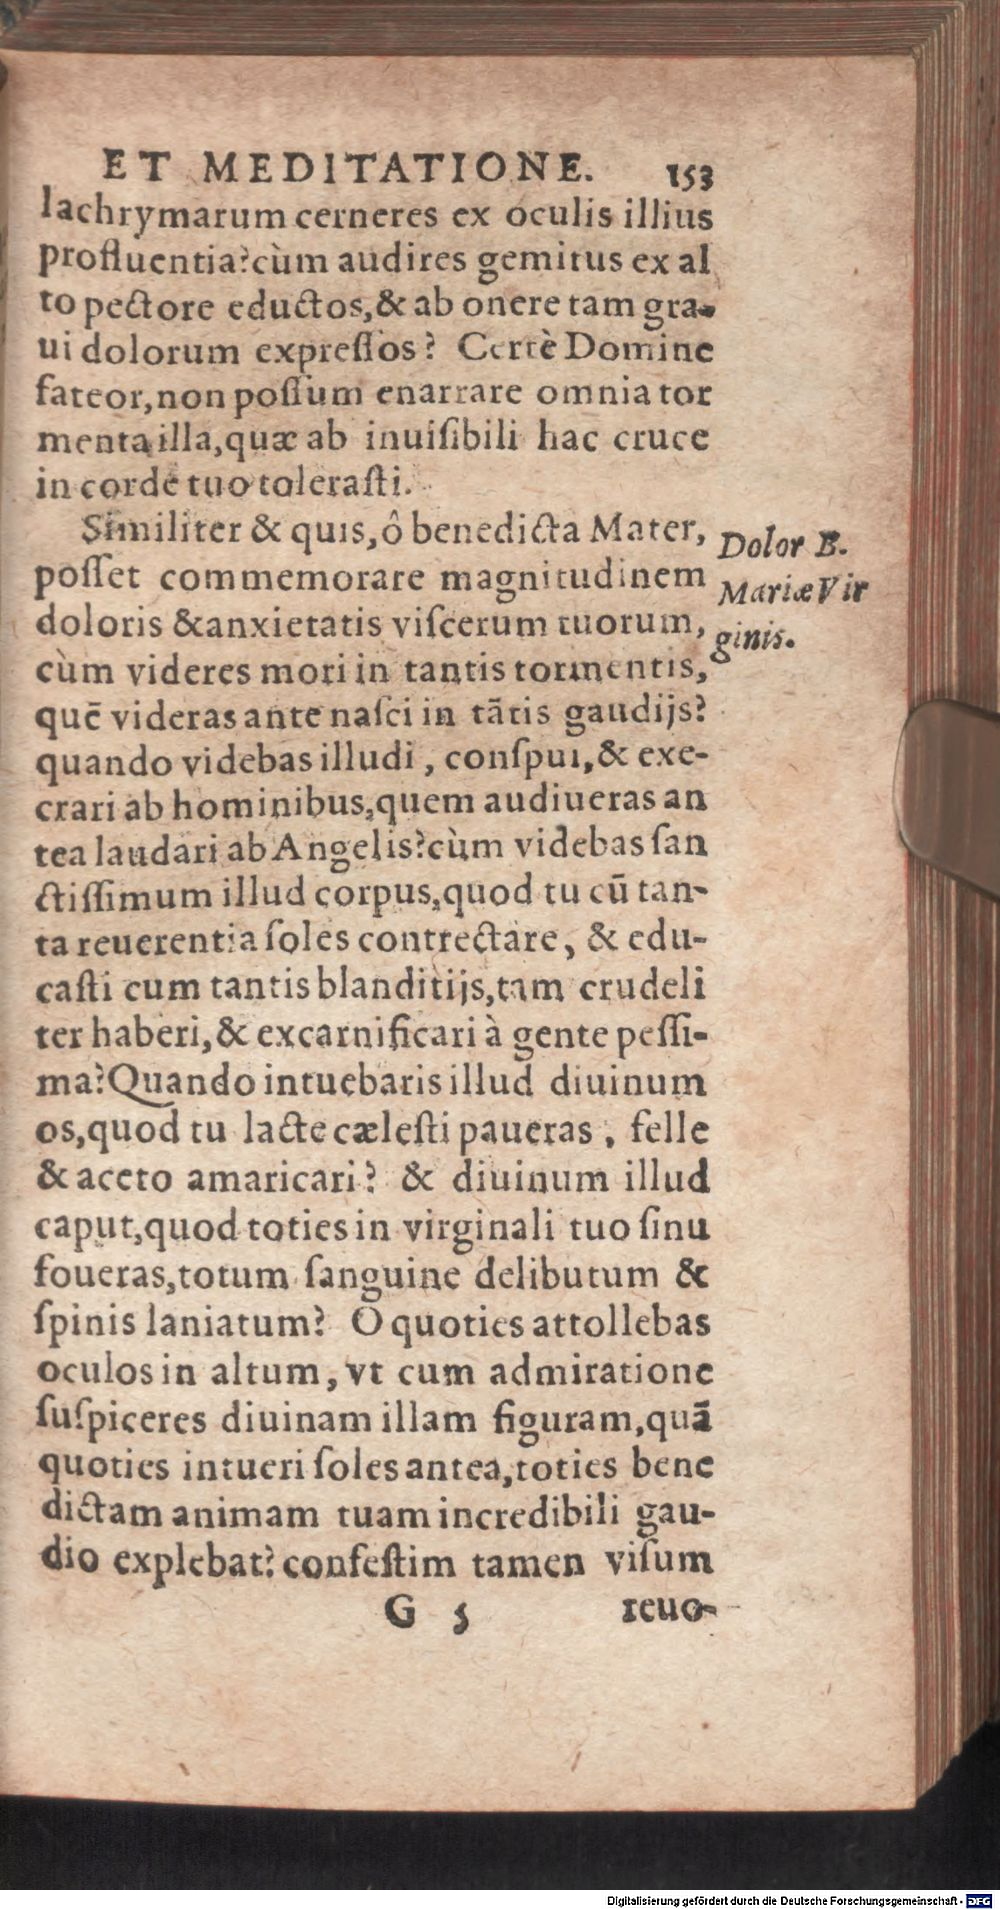 ET MEDITATIONE. 153
lachrymarum cerneres ex oculis illius
profluentia? cùm audires gemitus ex al
to pectore eductos, & ab onere tam gra-
ui dolorum expreſſos? Certè Domine
fateor, non poſſum enarrare omnia tor
menta illa, quæ ab inuiſibili hac cruce
in corde tuo toleraſti.
Similiter & quis, ô benedicta Mater,
poſſet commemorare magnitudinem
doloris & anxietatis viſcerum tuorum,
cùm videres mori in tantis tormentis,
quē videras ante naſci in tātis gaudijs?
quando videbas illudi, conſpui, & exe-
crari ab hominibus, quem audiueras an
tea laudari ab Angelis? cùm videbas ſan
ctiſſimum illud corpus, quod tu cū tan-
ta reuerentia ſoles contrectare, & edu-
caſti cum tantis blanditijs, tam crudeli
ter haberi, & excarnificari à gente peſſi-
ma? Quando intuebaris illud diuinum
os, quod tu lacte cæleſti paueras, felle
& aceto amaricari? & diuinum illud
caput, quod toties in virginali tuo ſinu
foueras, totum ſanguine delibutum &
ſpinis laniatum? O quoties attollebas
oculos in altum, vt cum admiratione
ſuſpiceres diuinam illam figuram, quā
quoties intueri ſoles antea, toties bene
dictam animam tuam incredibili gau-
dio explebat? confeſtim tamen viſum
G 5 reuo-
Dolor B.
Mariæ Vir
ginis.
Digitalisierung gefördert durch die Deutsche Forschungsgemeinschaft - DFG